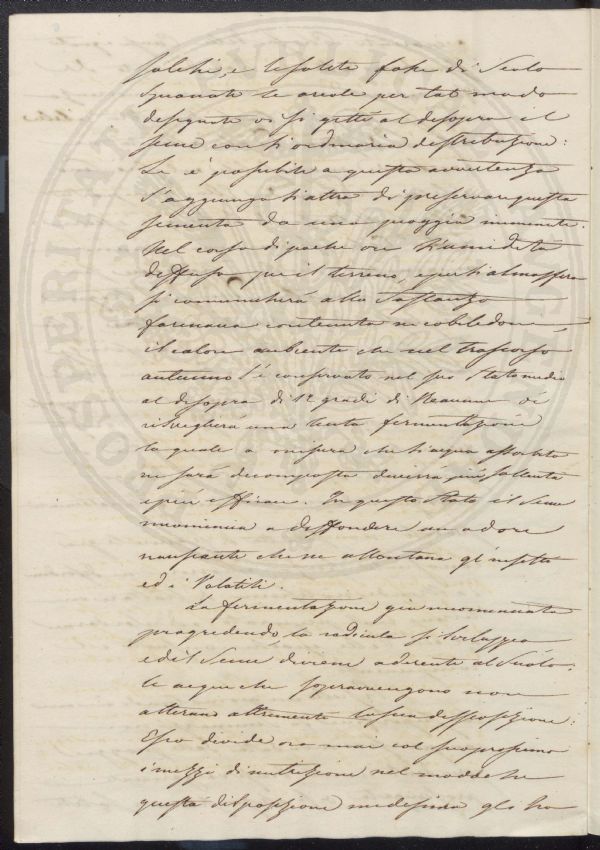 solchi, e le solite fosse di Scolo
Spianate le areole per tal modo
disegnate vi si getta al disopra il
seme con l'ordinaria distribuzione:
Se è possibile a questa avvertenza
s'aggiunga l'altra di preservare questa
sementa da una pioggia imminente.
Nel corso di poche ore l'umidità
diffusa per il terreno, e per l'atmosfera
si comunicherà alla Sostanza
farinacea contenuta ne cotiledoni,
il calore ambiente che nel trascorso
autunno s'è conservato nel suo Stato medio
al disopra di 12 gradi di Reaumur vi
risveglierà una lenta fermentazione
la quale a misura che l'acqua assorbita
ne sarà decomposta diverrà più sollecita
e più efficace. In questo Stato il Seme
incomincia a diffondere un odore
nauseante che ne allontana gl'insetti
ed i Volatili.
La fermentazione già incominciata
progredendo, la radicula si sviluppa
ed il Seme diviene aderente al Suolo.
le acque che sopravvengono non
alterano altrimenti la sua disposizione:
Esso divide ora mai col suo prossimo
i mezzi di nutrizione nel modo che
questa disposizione medesima glo ha